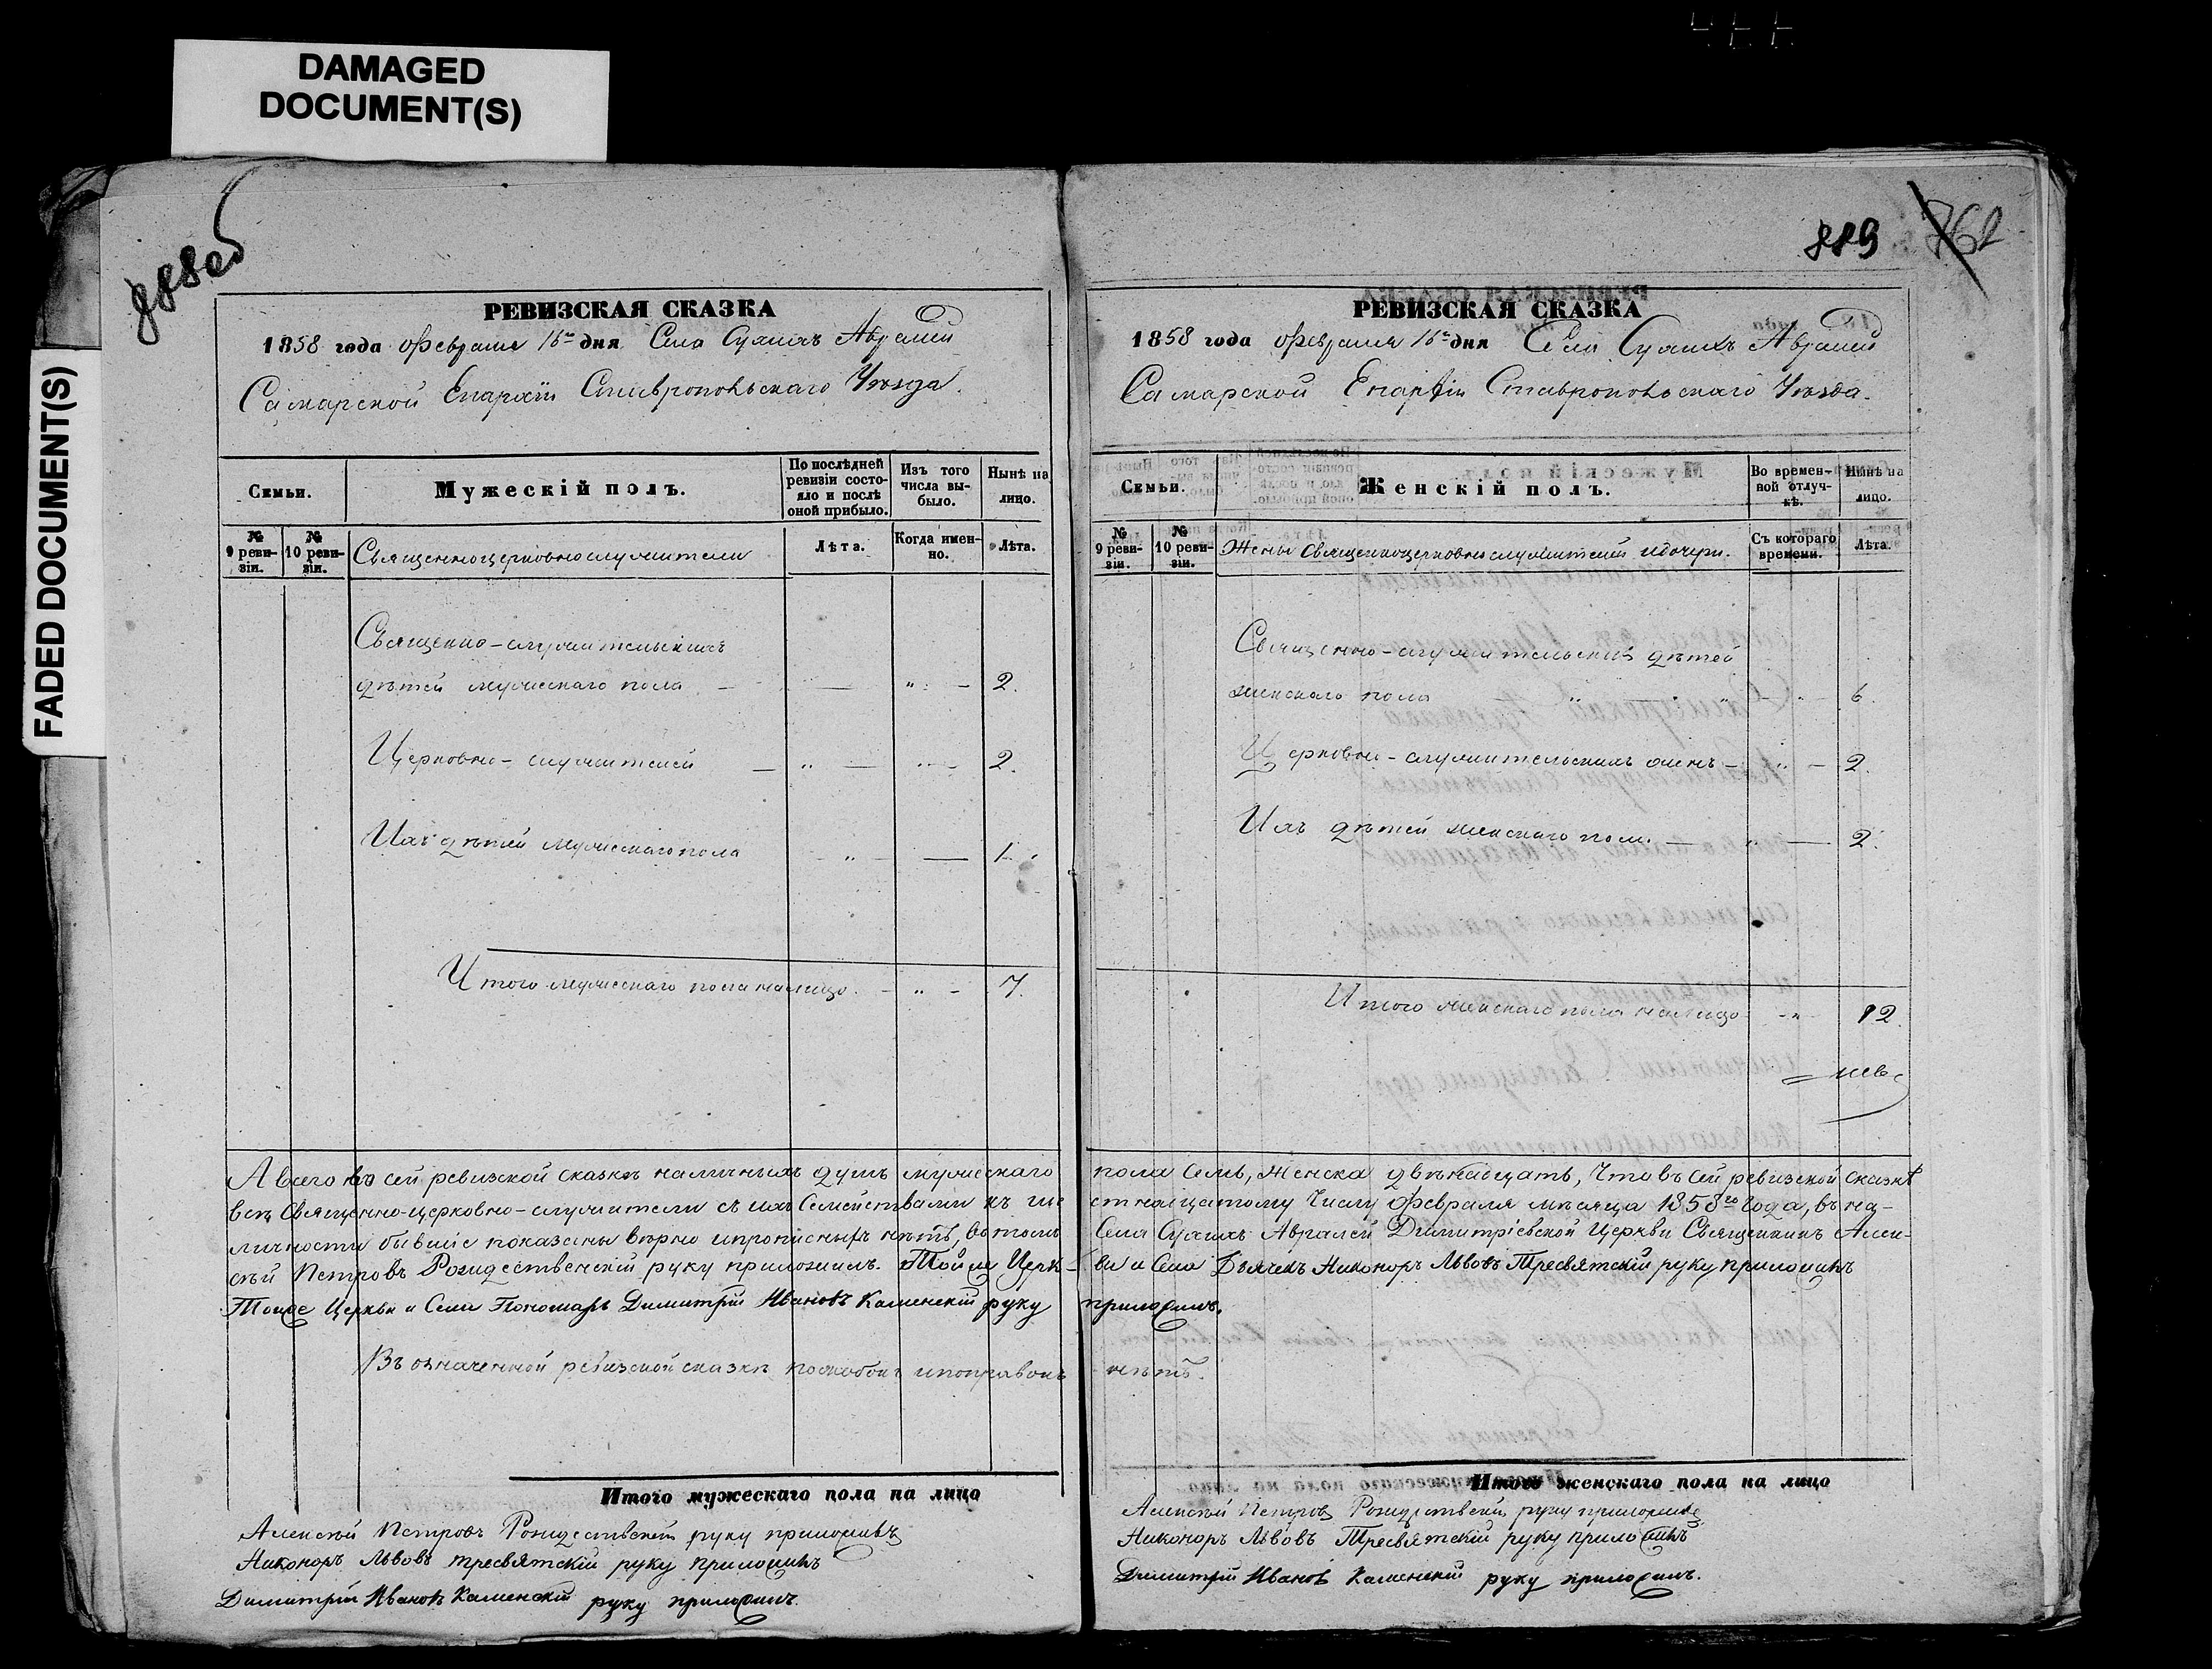 DAMAGED
DOCUMENT(S)
FADED DOCUMENT(S)
888об
РЕВИЗСКАЯ СКАЗКА
1858 года Февраля 16го дня Села Сухихъ Авралей
Самарской Епархіи Ставропольскаго Уѣзда.
Семьи.
Мужескій полъ.
По послѣдней ревизіи состояло и послѣ оной прибыло.
Изъ того числа выбыло.
Нынѣ на лицо.
№ 9 ревизіи.
№ 10 ревизіи.
Священноцерковнослужители
Лѣта.
Когда именно.
Лѣта.
Священно-служительскихъ
дѣтей мужескаго пола 2.
Церковно-служителей 2.
Ихъ дѣтей мужескаго пола 1.
Итого мужескаго пола налицо 7.
А всего въ сей ревизской сказкѣ наличныхъ душъ мужескаго
всѣ Священно-церковно-служители съ ихъ Семействами къ ше
личности бывшіе показаны вѣрно и прописныхъ нѣтъ, въ томъ
сѣй Петровъ Рождественскій руку приложилъ. Той же Церк-
Тойже Церкви и Села Пономарь Димитрій Ивановъ Каменскій руку
Въ означенной ревизской сказкѣ поскобокъ и поправокъ
Итого мужескаго пола на лицо
Алексѣй Петровъ Рождественскій руку приложилъ
Никоноръ Львовъ Тресвятскій руку приложилъ
Димитрій Ивановъ Каменскій руку приложилъ.
889
762
РЕВИЗСКАЯ СКАЗКА
1858 года Февраля 16го дня Села Сухихъ Авралей
Самарской Епархіи Ставропольскаго Уѣзда.
Семьи.
Женскій полъ.
Во временной отлучкѣ.
Нынѣ на лицо.
№ 9 ревизіи.
№ 10 ревизіи.
Жены Священноцерковнослужителей и дочери.
Съ котораго времени.
Лѣта.
Священно-служительскихъ дѣтей
женскаго пола 6.
Церковно-служительскихъ женъ 2.
Ихъ дѣтей женскаго пола 2.
Итого женскаго пола налицо 12.
пола Семь, Женска двѣнадцать, Что въ сей ревизской сказкѣ
стнадцатому Числу Февраля мѣсяца 1858го Года, въ на-
Села Сухихъ Авралей Димитріевской Церкви Священникъ Алек-
ви и Села Дьячекъ Никоноръ Львовъ Тресвятскій руку приложилъ
приложилъ.
нѣтъ.
Итого женскаго пола на лицо
Алексѣй Петровъ Рождественскій руку приложилъ
Никоноръ Львовъ Тресвятскій руку приложилъ
Димитрій Ивановъ Каменскій руку приложилъ.